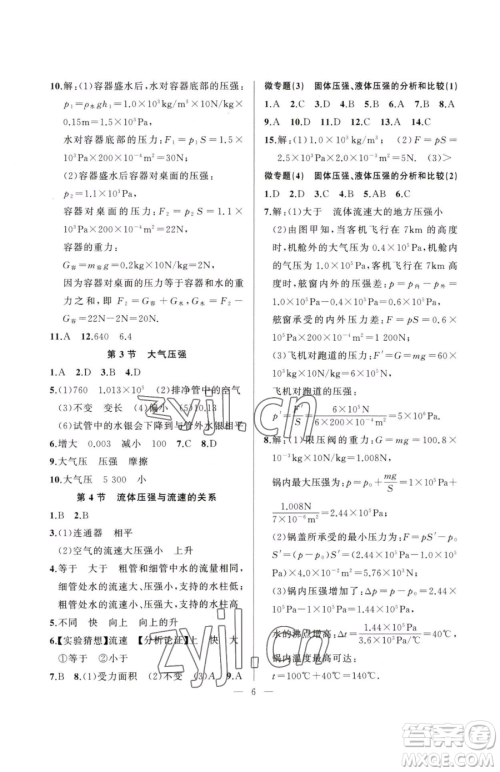 10.解:(1)容器盛水后,水对容器底部的压强:
p₁=ρ水gh₁=1.0×10³kg/m³×10N/kg×
0.15m=1.5×10³Pa
水对容器底部的压力:F₁=p₁S=1.5×
10³Pa×200×10⁻⁴m²=30N;
容器对桌面的压强:
p₂=1.1×10³Pa,
容器对桌面的压力:F₂=p₂S=1.1×
10³Pa×200×10⁻⁴m²=22N
容器的重力:
G容=m容g=0.2kg×10N/kg=2N
水和容器对桌面的压力等于水和容器的重
力之和,即F₂=G水+G容,故G水=F₂-
G容=22N-2N=20N
11.A 12.640 6.4
第3节 大气压强
1.A 2.D 3.B 4.D
5.(1)760 1.013×10⁵ (2)排净管中的空气
(3)不变 变长 (4)偏小 (5)10.13
(6)试管中的水银会下降到与管外水银相平
6.增大 0.003 减小 100 7.C 8.D
9.大气压 压强 摩擦
10.大气压 5 300 小
第4节 流体压强与流速的关系
1.B 2.B
3.(1)连通器 相平
(2)空气的流速大压强小 上升
4.等于 大于 粗管和细管中水的流量相同,
细管处水的流速大,压强小,支持的水柱低;
粗管处水的流速小,压强大,支持的水柱高
5.不同 快 向上 向上的升
6.【实验猜想】流速 【分析论证】(1)快 小 大
①等于 ②不变
7.B 8.(1)受力面积 (2)不变 (3)A 9.A
微专题(3) 固体压强、液体压强的分析和比较(1)
1.A 2.C 3.D 4.B 5.B 6.A 7.B 8.A
9.A 10.D 11.C 12.A 13.B 14.A
15.解:(1)1.0×10³Pa (2)F=pS=
2.5×10³Pa×20×10⁻⁴m²=5N. (3)>
微专题(4) 固体压强、液体压强的分析和比较(2)
1.D 2.D 3.C 4.B 5.A 6.C
7.解:(1)大于 流体流速大的地方压强小
(2)由图甲知,当客机飞行在7km高度
时,机舱外的大气压为0.4×10⁵Pa,机舱内
的大气压为1.0×10⁵Pa,客机飞行在7km
高度时,舷窗内外压强差:p=p内-p外=
1.0×10⁵Pa-0.4×10⁵Pa=6×10⁴Pa
舷窗内外的压力差:F=pS=6×10⁴Pa×
200×10⁻⁴m²=1 200N.
(3)飞机对跑道的压力:F'=G=mg=60×
10³kg×10N/kg=6×10⁵N
飞机对跑道的压强:
p'=F'/S=6×10⁵N/(6×200×10⁻⁴m²)=5×10⁶Pa.
8.解:(1)限压阀的重力:G=mg=
100.8×10⁻³kg×10N/kg=1.008N
锅内最大压强:p=p₀+mg/S=1.0×10⁵Pa+
1.008N/(7×10⁻⁶m²)=2.44×10⁵Pa.
(2)锅盖所承受的最小压力F=pS'-p₀S'=
(p-p₀)S'=(2.44×10⁵Pa-1.0×10⁵Pa)×
(3)锅内压强增加了:Δp=p-p₀=1.44×
水的沸点增高:Δt=1.44×10⁵Pa/(3.6×10³Pa/℃)=40℃,
锅内温度最高可达:
t=100℃+40℃=140℃.
6
zyjl.cn
zyjl.cn